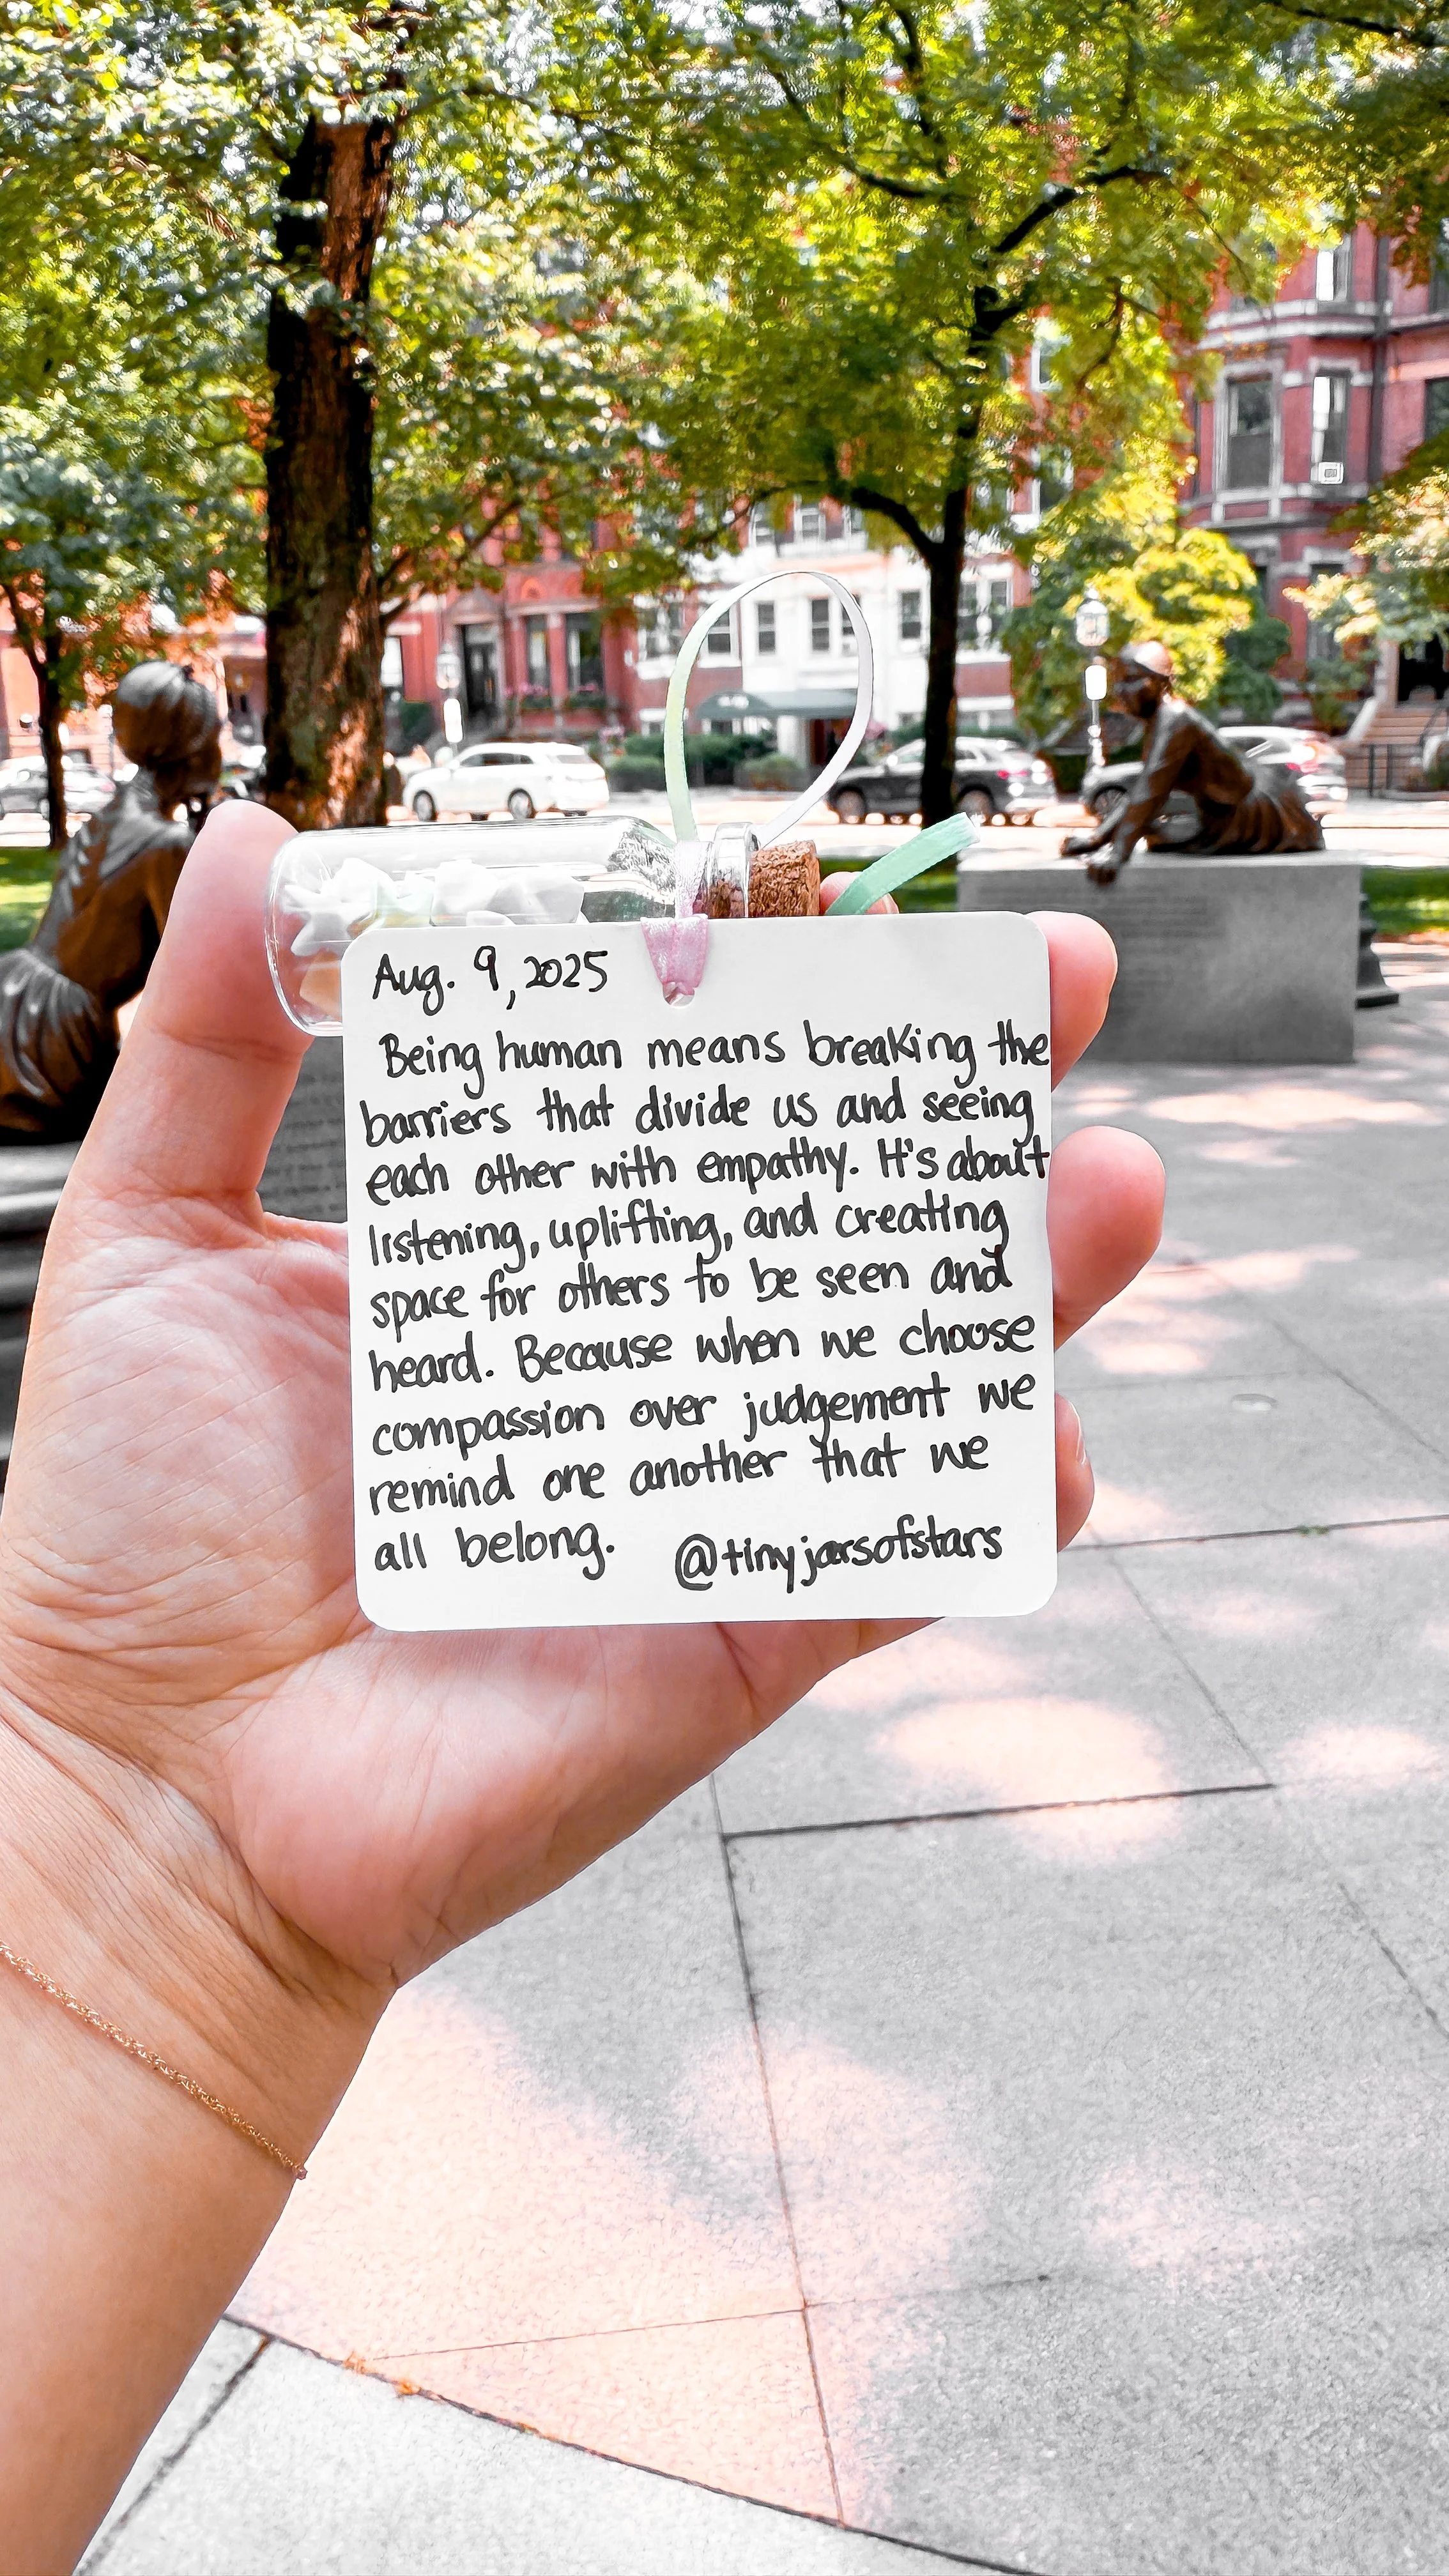 Aug. 9, 2025
Being human means breaking the
barriers that divide us and seeing
each other with empathy. It's about
listening, uplifting, and creating
space for others to be seen and
heard. Because when we choose
compassion over judgement we
remind one another that we
all belong. @tinyjarsofstars